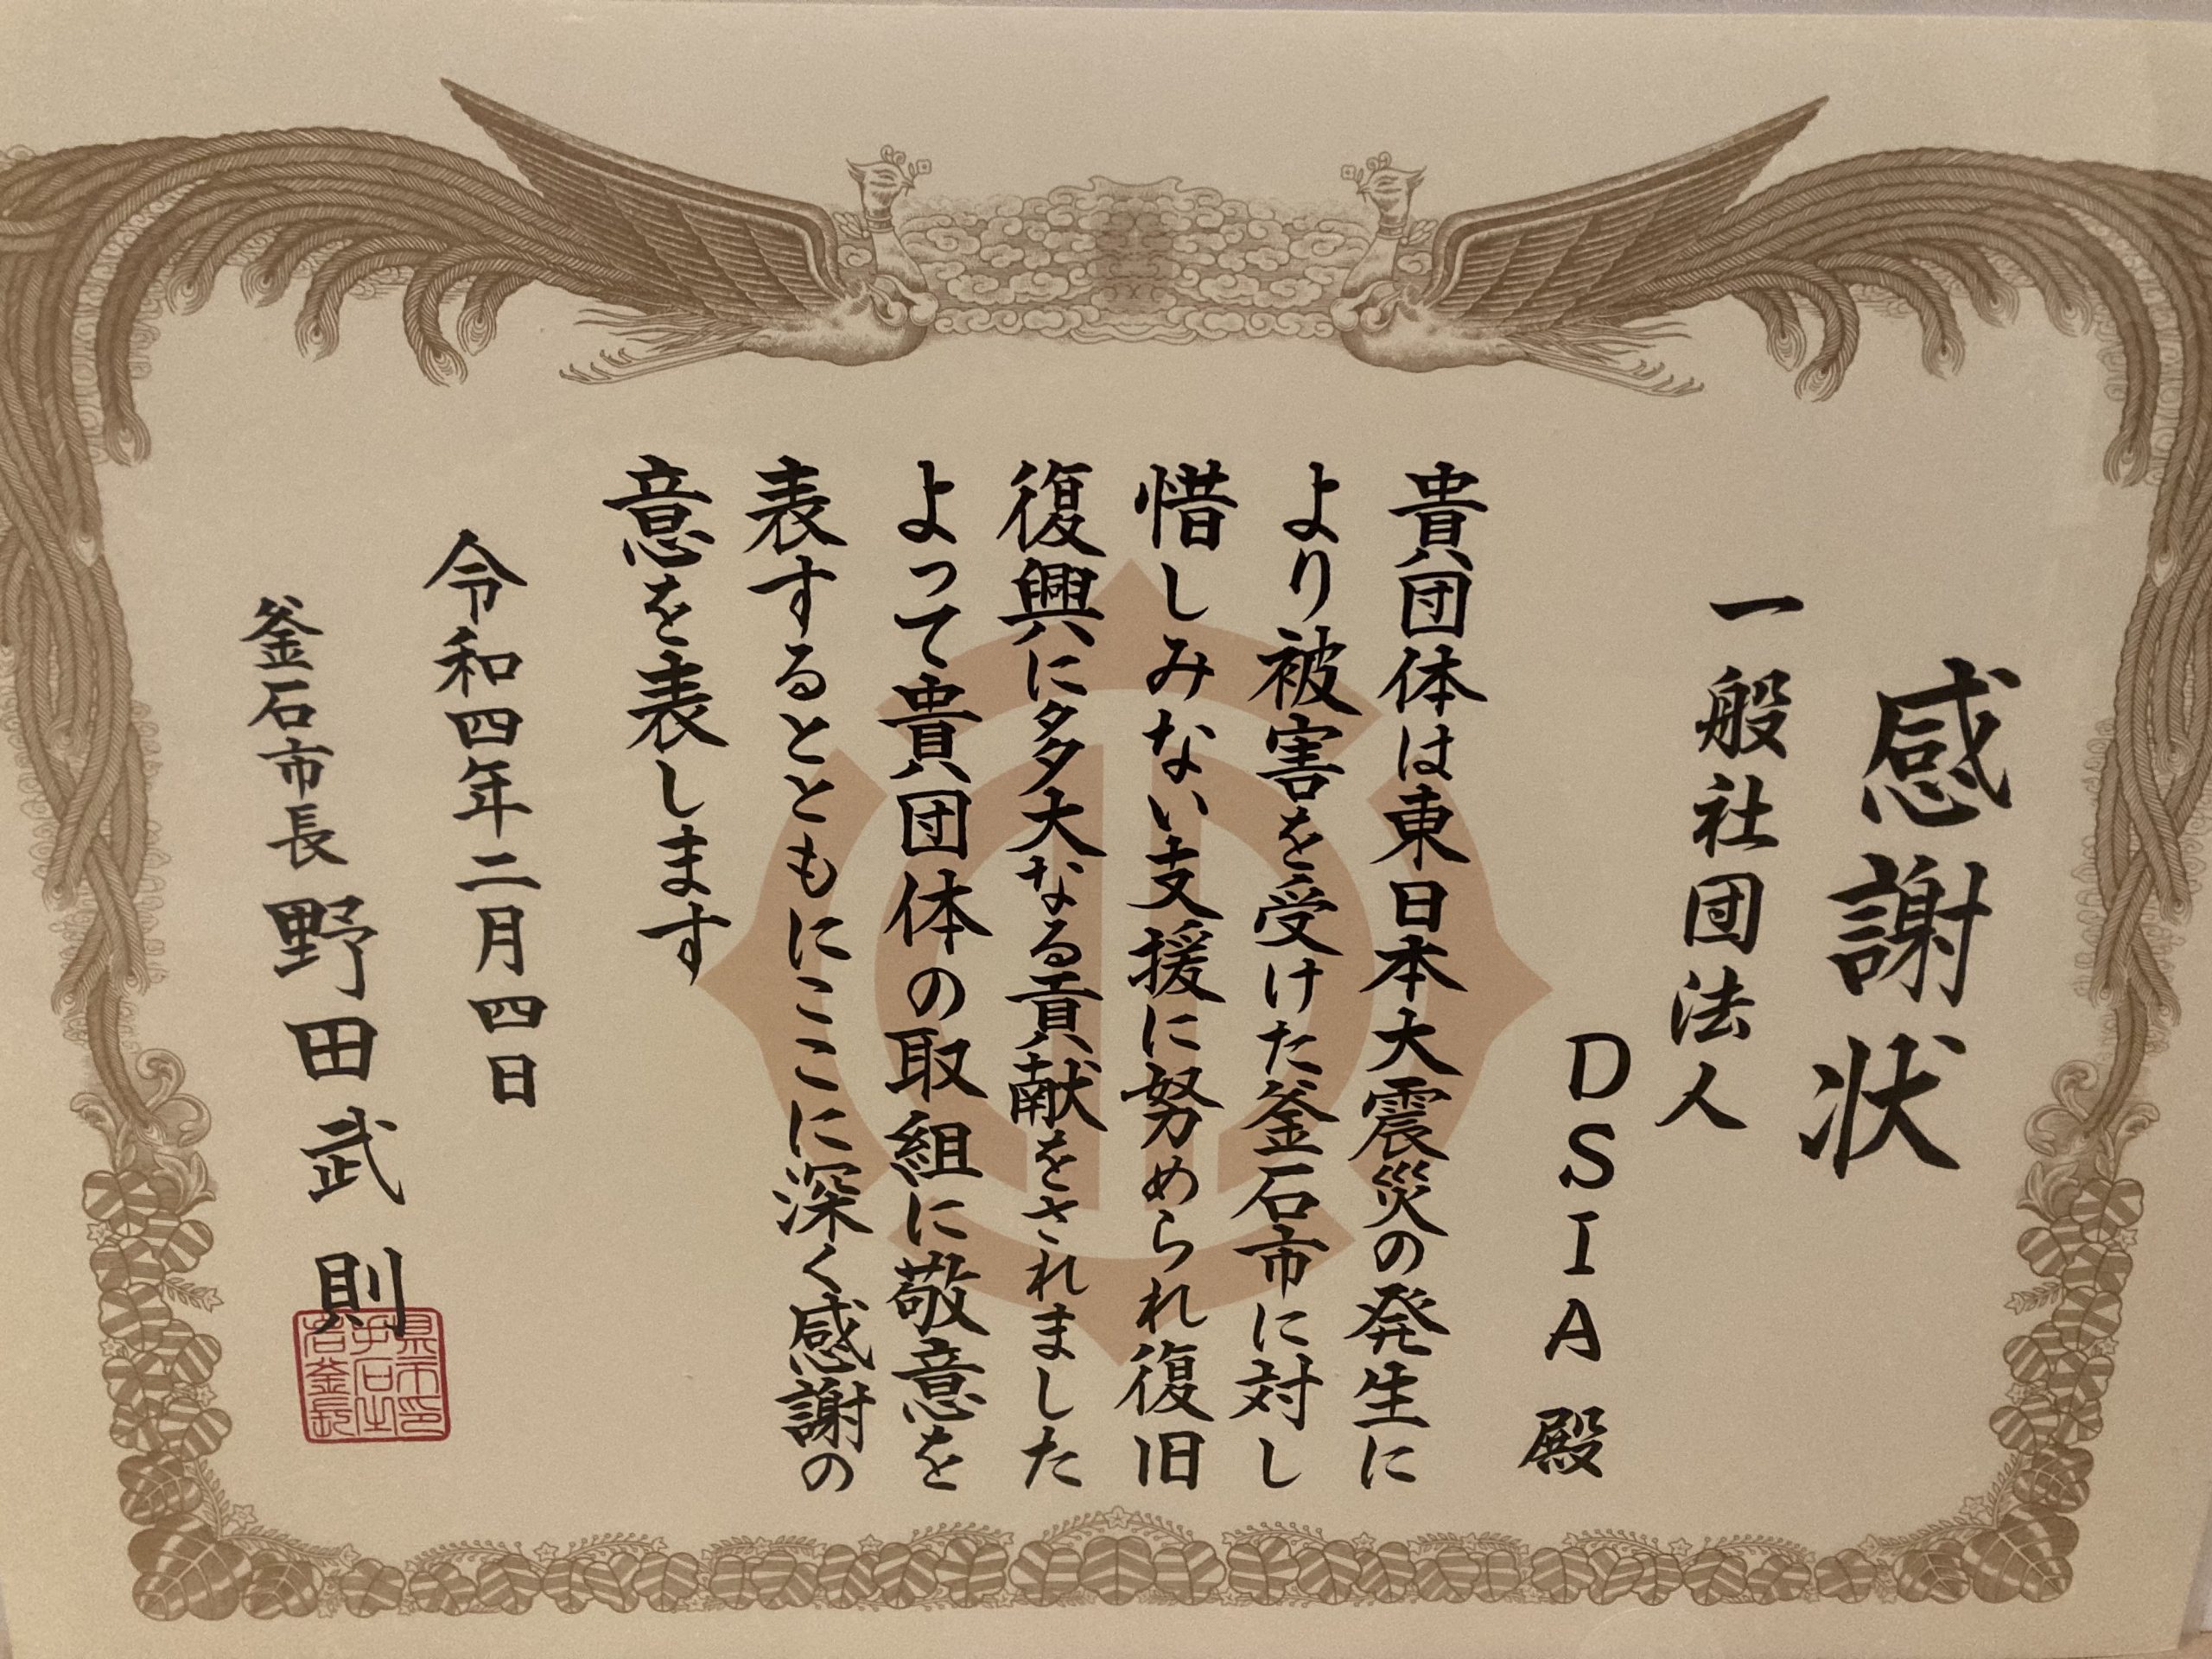 感謝状
一般社団法人
DSIA殿
貴団体は東日本大震災の発生に
より被害を受けた釜石市に対し
惜しみない支援に努められ復旧
復興に多大なる貢献をされました
よって貴団体の取組に敬意を
表するとともにここに深く感謝の
意を表します
令和四年二月四日
釜石市長 野田武則